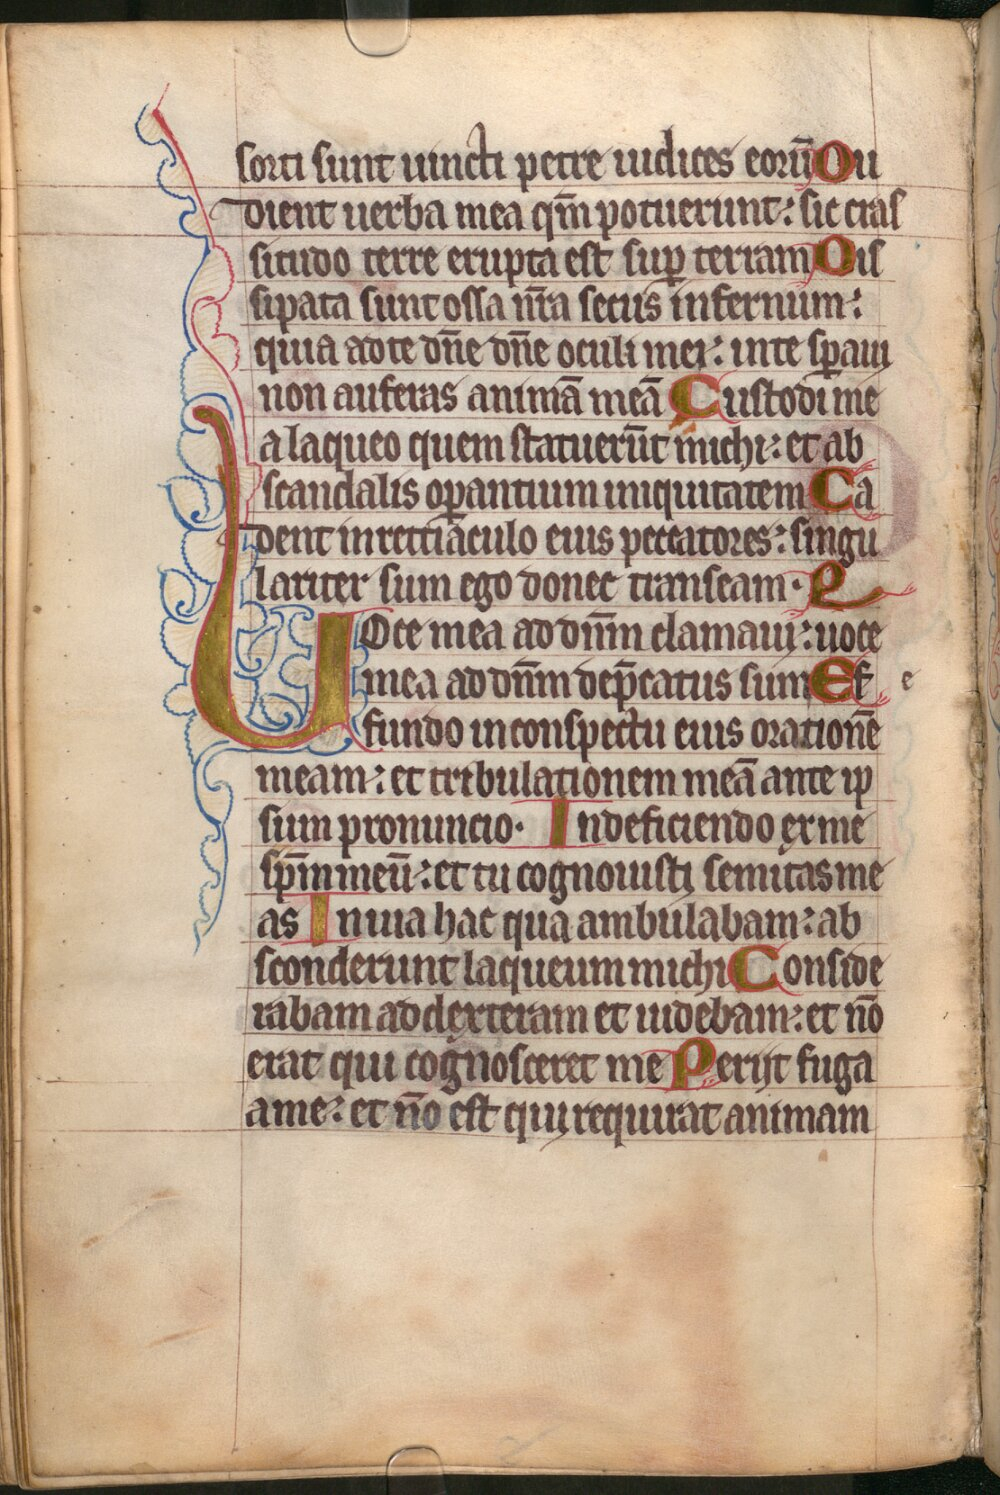 sorti sunt uincti petre iudices eorū Ou
dient uerba mea qm̄ potuerunt: sic cras
situdo terre erupta est sup̄ terram Dis
sipata sunt ossa nr̄a secus infernum:
quia ad te dn̄e dn̄e oculi mei: in te sp̄aui
non auferas animā meā Custodi me
a laqueo quem statuerūt michi: et ab
scandalis op̄antium iniquitatem Ca
dent in rettiaculo eius peccatores: singu
lariter sum ego donec transeam · P
UOce mea ad dn̄m clamaui: uoce
mea ad dn̄m dep̄catus sum Ef e
fundo in conspectu eius orationē
meam: et tribulationem meā ante ip
sum pronuncio· In deficiendo ex me
sp̄m meū: et tu cognouisti semitas me
as In uia hac qua ambulabam: ab
sconderunt laqueum michi Conside
rabam ad dexteram et uidebam: et nō
erat qui cognosceret me Perijt fuga
a me: et nō est qui requirat animam